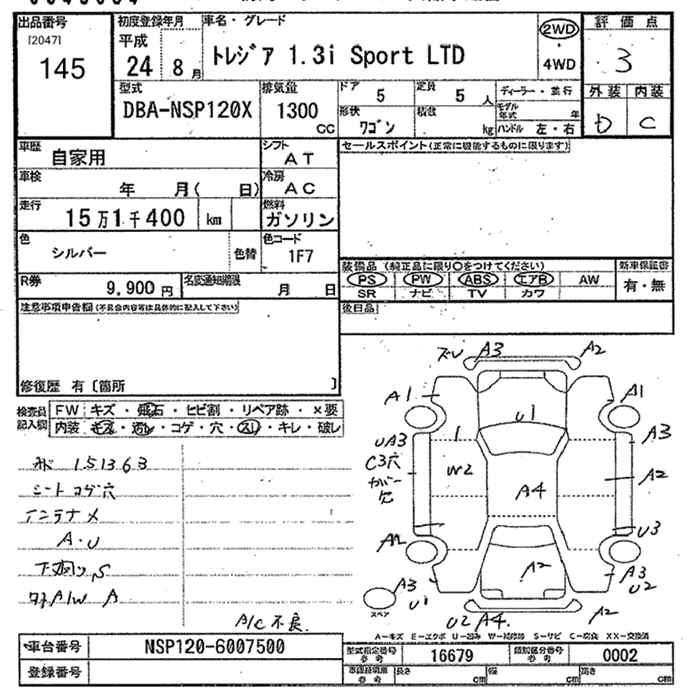 出品番号
[2047]
145
初度登録年月
平成
24 8月
車名・グレード
トレジア 1.3i Sport LTD
2WD
4WD
評価点
3
外装 内装
D C
型式
DBA-NSP120X
排気量
1300
CC
ドア
5
定員
5 人
ディーラー・並行
形状
ワゴン
積載
kg
モデル年式 年
ハンドル 左・右
車歴
自家用
シフト
AT
車検
年 月( 日)
冷房
AC
走行
15万1千400 km
燃料
ガソリン
色
シルバー
色替
色コード
1F7
R券
9,900円
名変通知期限
月 日
セールスポイント(正常に機能するものに限ります)
装備品(純正品に限り○をつけてください)
PS PW ABS エアB AW
SR ナビ TV カワ
新車保証書
有・無
注意事項申告欄(不具合内容等は具体的に記入して下さい)
後日品
修復歴 有〔箇所 〕
検査員記入欄
FW キズ・飛石・ヒビ割・リペア跡・×要
内装 キズ・汚レ・コゲ・穴・スレ・キレ・破レ
151363
シートコゲ穴
アンテナメ
A・U
下廻りS
A/W A
A/C不良
ズレ A3 A2
A1 A1
U1
1
UA3 A3
C3穴
カバー欠
W2 A4 A2
U3
A2
A3 A2 A3
U1 U2
スペア
U2 A4. A2
A-キズ E-エクボ U-凹み W-補修跡 S-サビ C-腐食 XX-交換済
車台番号
NSP120-6007500
登録番号
型式指定番号
参考
16679
類別区分番号
参考
0002
参考
長さ cm 幅 cm 高さ cm